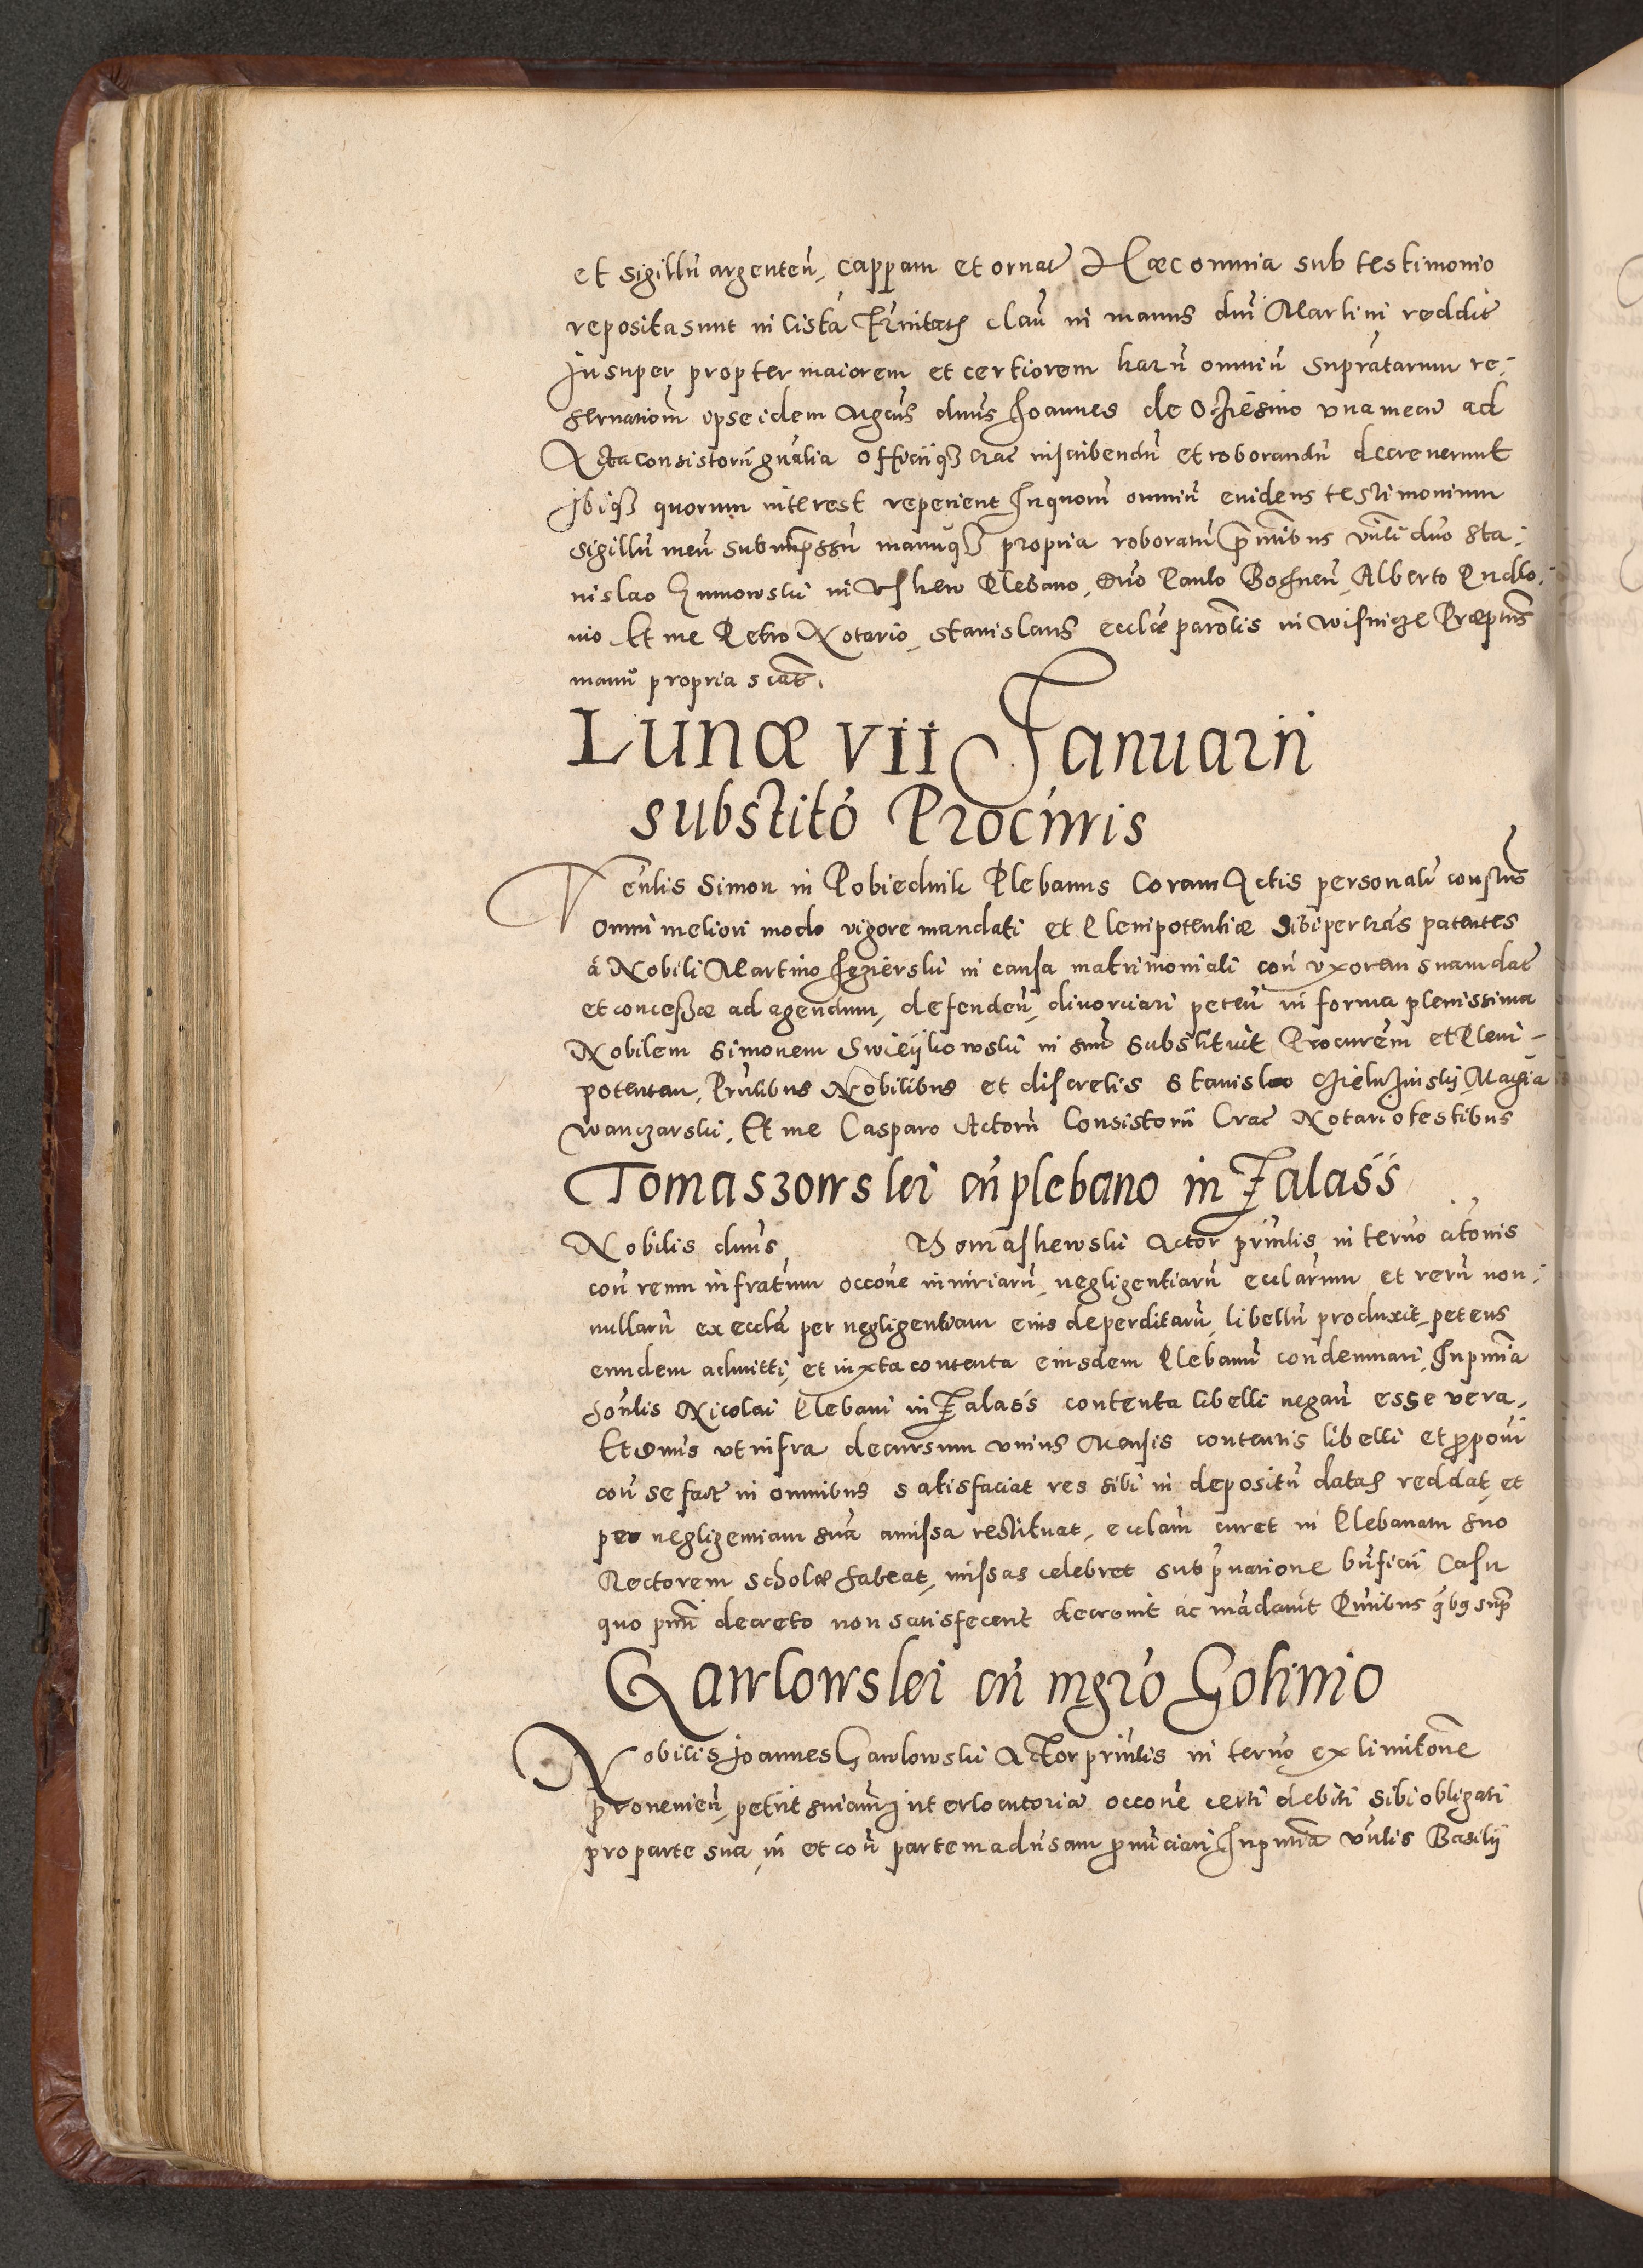 et sigillũ argenteũ, cappam et ornat Hæc omnia sub testimonio
reposita sunt in cista Trinitatis claũ in manus dñi Martini reddit
Insuper propter maiorem et certiorem harũ omniũ supratarum re-
seruationẽ ipse idem dnus Joannes de unacum ad
Acta consistorii gñalia officiiq3 Crac inscribendũ et roborandũ decreuerunt
ibiq3 quorum interest reperient In quorũ omniũ euidens testimonium
sigillũ meũ subimpressũ manuq3 propria roboratũ Pñtibus vñli dño Sta-
nislao in Plebano, Dño Paulo Alberto
nio Et me Petro Notario, Stanislaus ecclæ parolis in Wisnicze Præptus
manu propria
Lunæ VII Januarii
substito Procuris
Venlis Simon in Pobiednik Plebanus Coram Actis personalr constus
omni meliori modo vigore mandati et Plenipotentiæ sibi per patentes
à Nobili Martino Jezierski in causa matrimoniali con vxorem suam dat
et concessæ ad agendum, defendeñ, diuorciari peteñ in forma plenissima
Nobilem Simonem in suũ substituit Procurem et Pleni-
potentem, Pñtibus Nobilibus et discretis Stanislao
Wanczarski, Et me Casparo Actorũ Consistorii Crac Notario testibus
Tomaszowskj cũ plebano in Zalass
Nobilis dnus Thomashewski Actor prinlis in terno citonis
con reum infratum occone iniuriarũ, negligentiarũ ecclarum et rerũ non-
nullarũ ex eccla per negligentiam eius deperditarũ, libellũ produxit, petens
eundem admitti, et iuxta contenta eiusdem Plebanũ condemnari, In pñtia
honlis Nicolai Plebani in Zalass contenta libelli negañ esse vera,
Et Dnus vt infra decursum vnius Mensis contentis libelli et proponi
con se fact in omnibus satisfaciat res sibi in depositũ datas reddat, et
per negligentiam suã amissa restituat, ecclam curet in Plebanatu suo
Rectorem scholæ habeat, missas celebret sub priuatione bñficii Casu
quo pñti decreto non satisfecerit decreuit ac mãdauit Pñtibus qbg supr
Gawlowskj cũ mgro Golinio
Nobilis Joannes Gawlowski Actor prinlis in terno ex limitone
proueniẽ, petiit sniam interlocutoriã occone certi debiti sibi obligati
pro parte sua, in et con partem aduersam pronũciari In pñtia vñlis Basilij